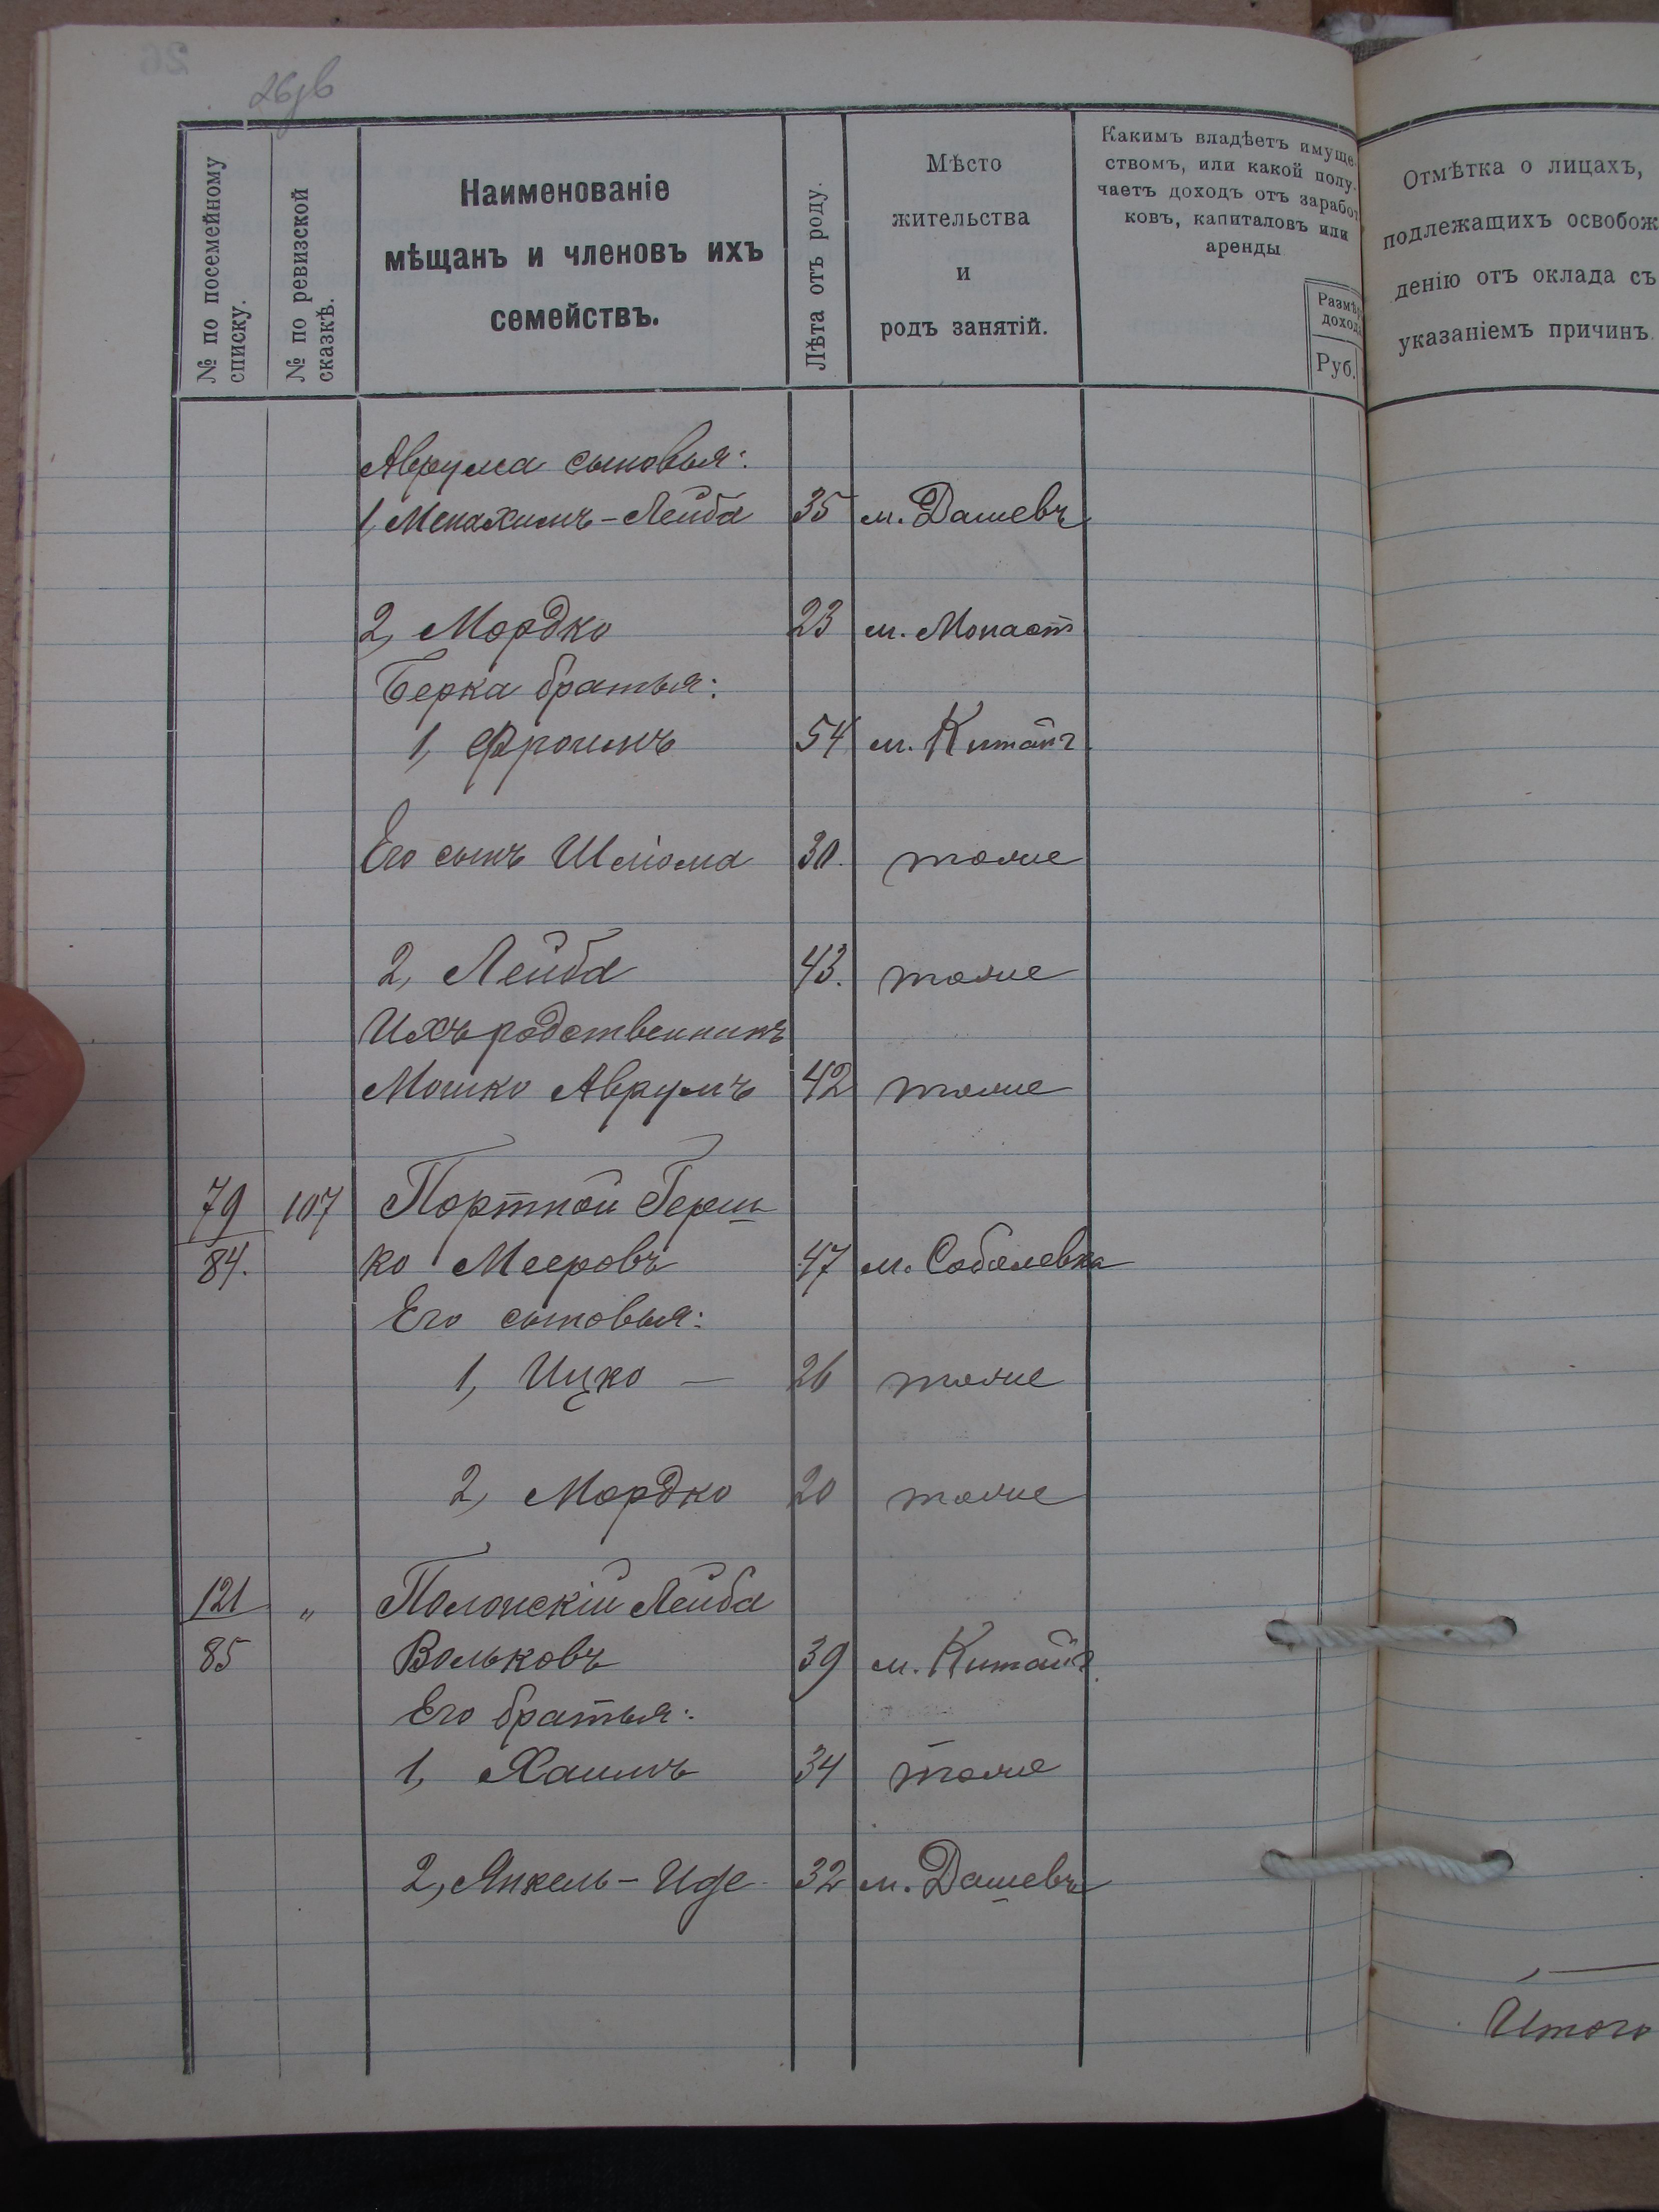 26об
№ по посемейному списку.
№ по ревизской сказкѣ.
Наименованіе
мѣщанъ и членовъ ихъ
семействъ.
Лѣта отъ роду.
Мѣсто
жительства
и
родъ занятій.
Какимъ владѣетъ имуще-
ствомъ, или какой полу-
чаетъ доходъ отъ заработ
ковъ, капиталовъ или
аренды
Размѣр
дохода
Руб.
Отмѣтка о лицахъ,
подлежащихъ освобож
денію отъ оклада съ
указаніемъ причинъ.
Аврума сыновья:
1, Менахимъ-Лейба 35 м. Дашевъ
2, Мордко 23 м. Монаст
Берка братья:
1, Фроимъ 54 м. Китайг.
Его сынъ Шліома 30. тоже
2, Лейба 43. тоже
Ихъ родственникъ
Мошко Аврумъ 42 тоже
79 107 Портной Герш-
84. ко Мееровъ 47 м. Соболевка
Его сыновья:
1, Ицко — 26 тоже
2, Мордко 20 тоже
121 " Полонскій Лейба
85 Вольковъ 39 м. Китайг.
Его братья:
1, Хаимъ 34 тоже
2, Янкель-Иде 32 м. Дашевъ
Итого